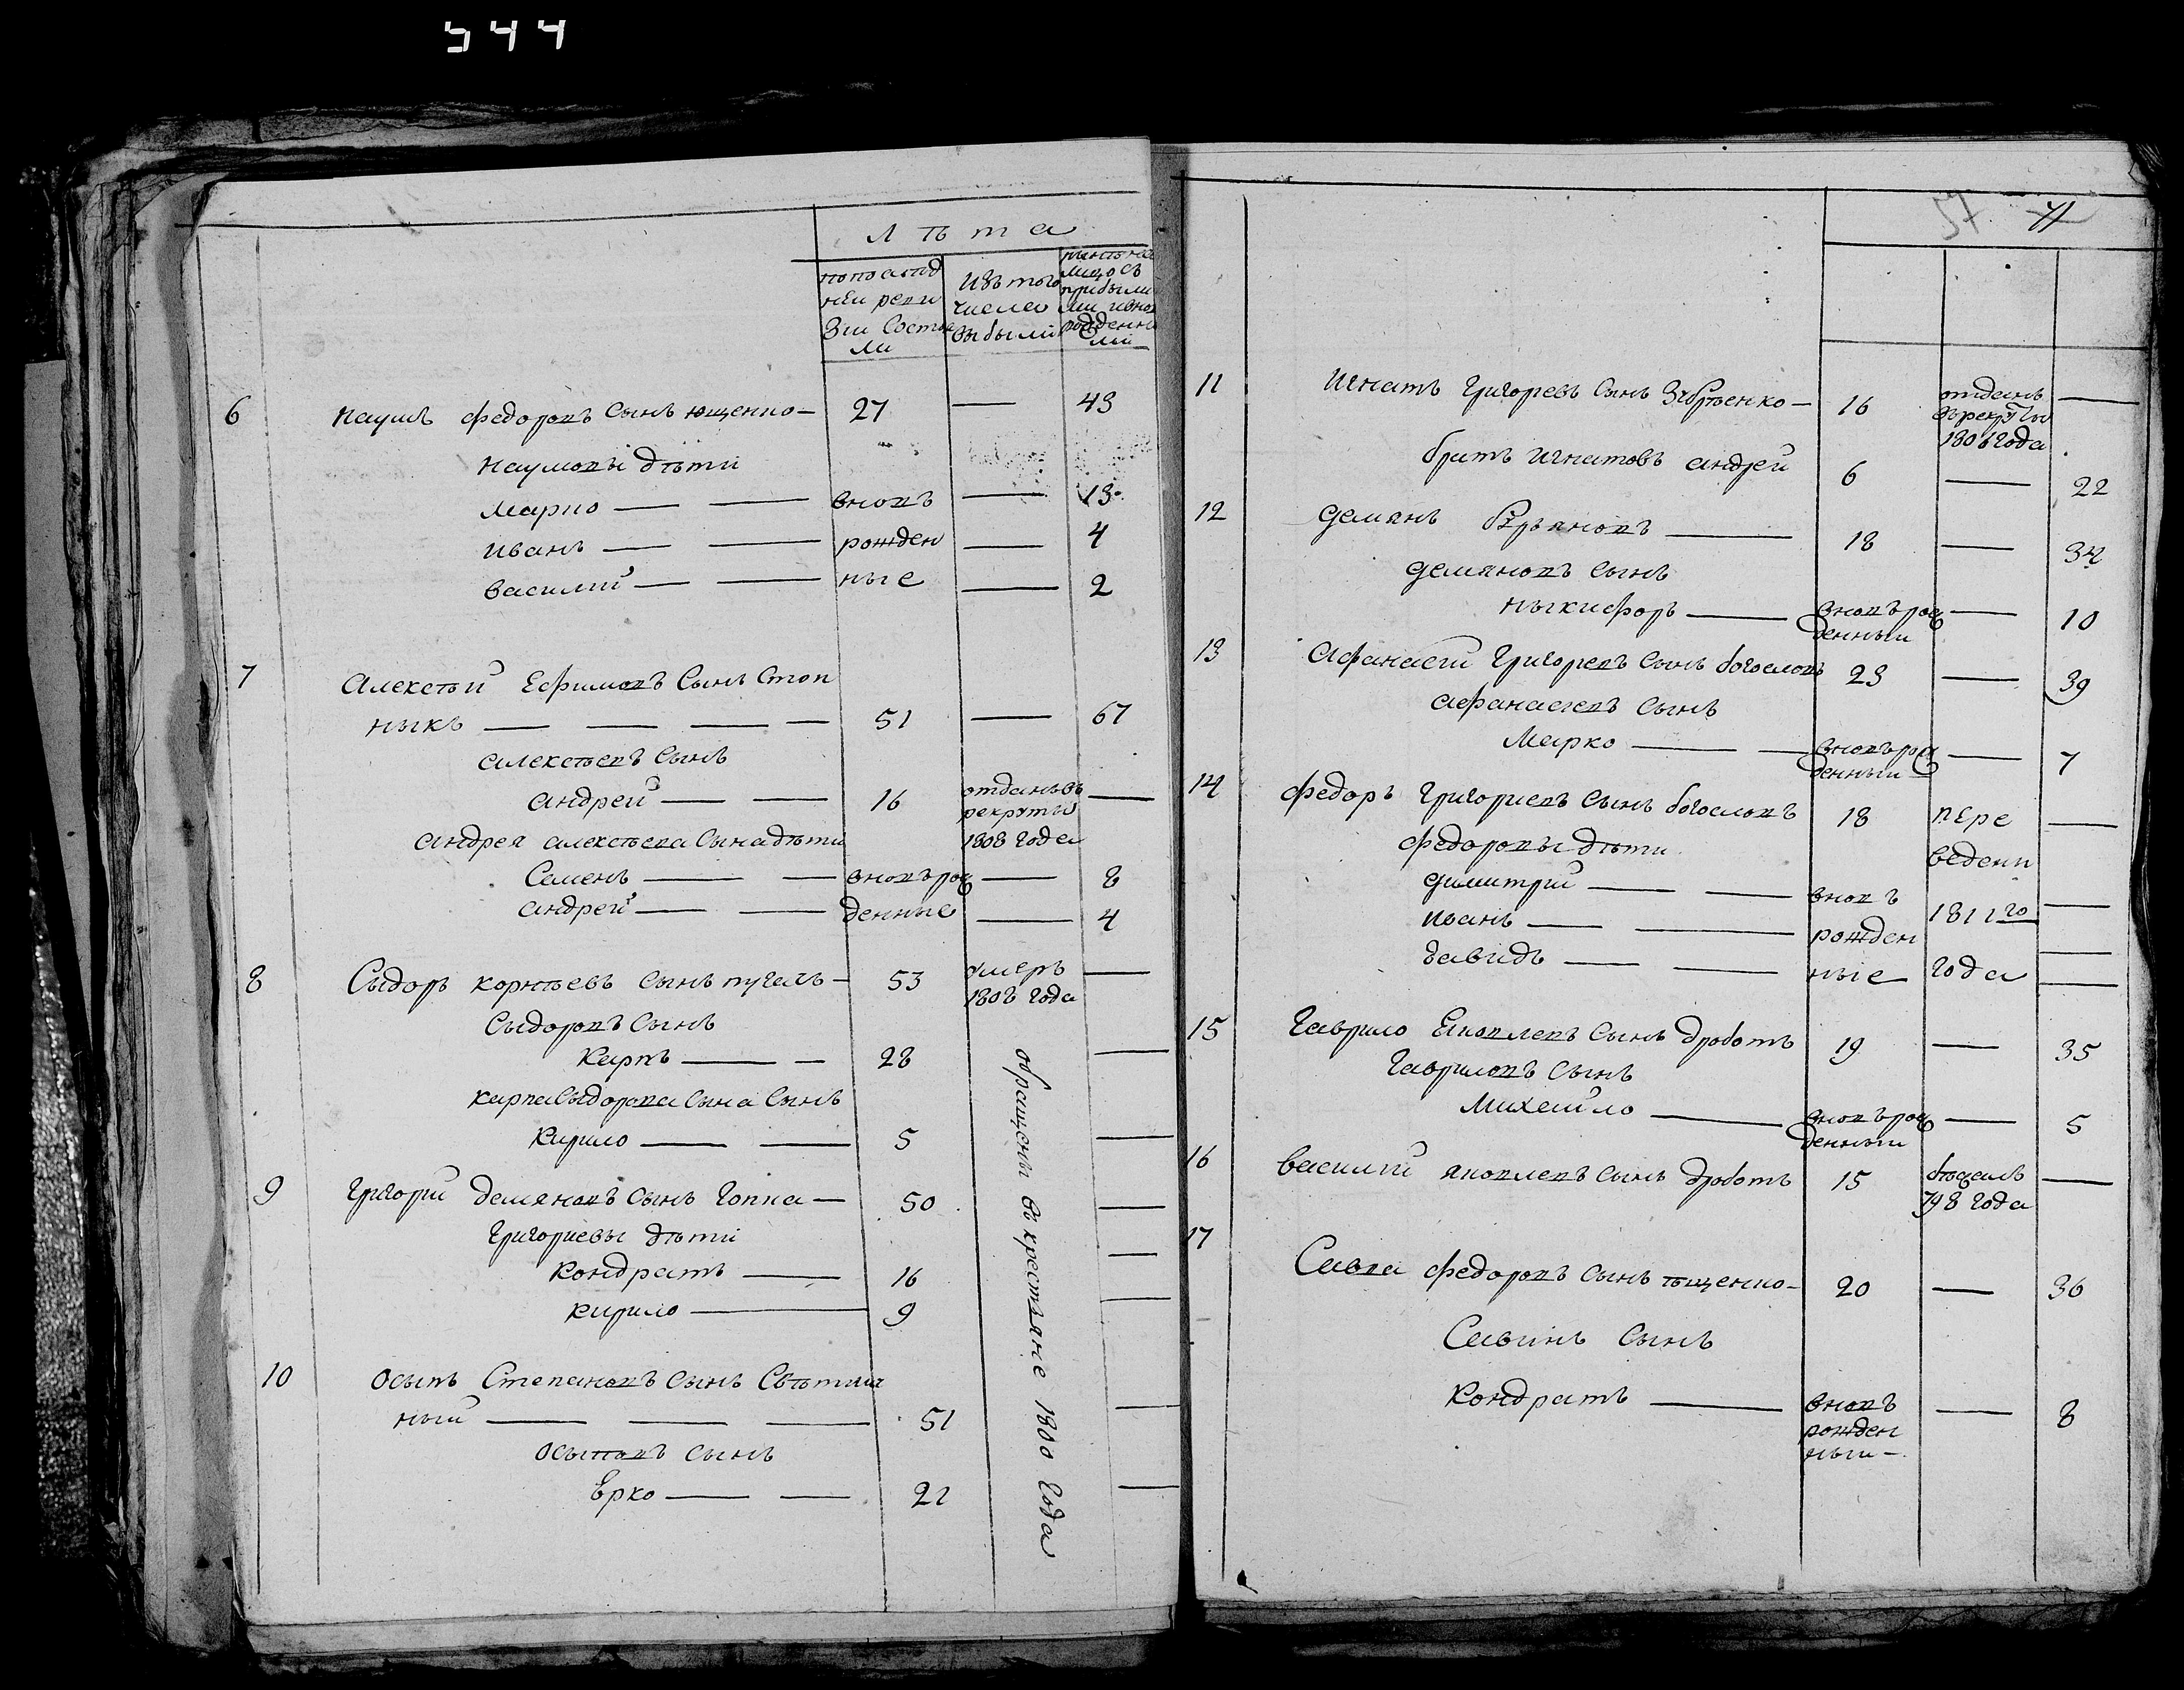 544
лѣта
по послѣд
ней реви
зіи Состоя
ли
Изъ того
числа
выбыли
нынѣ на
лицо съ
прибыли
ми и вно
рожденны
ми
6 наумъ федоровъ Сынъ ющенко — 27 — 43
наумовы дѣти
марко — — вновъ — 13
иванъ — — рожден — 4
василій — — ные — 2
7 Алексѣй Ефимовъ Сынъ Стоп
ныкъ — — — — 51 — 67
алексѣевъ Сынъ
андрей — — 16 отданъ въ —
рекруты
андрея алексѣева Сына дѣти 1808 года
Семенъ — — вновъ рож — 8
андрей — — денные — 4
8 Сыдоръ корнѣевъ Сынъ пугачъ — 53 умеръ —
1808 года
Сыдоровъ Сынъ
Карпъ — — 28 —
карпа Сыдорова Сына Сынъ
Кирило — — 5 —
9 Григорій демяновъ Сынъ Гопка — 50 —
Григориевы дѣти
Кондратъ — 16 —
Кирило — 9 —
10 Осыпъ Степановъ Сынъ
ный — — — 51 —
осыповъ Сынъ
Ерко — — 21 —
обращены въ крестьяне 1800 года
37 41
11 Игнатъ Григоревъ Сынъ — 16 отданъ —
въ рекруты
1806 года
братъ игнатовъ андрей 6 — 22
12 демянъ — 18 — 34
демяновъ Сынъ
ныкифоръ — вновъ рож — 10
денный
13 Афанасій Григоревъ Сынъ богословъ 23 — 39
афанасіевъ Сынъ
Марко — — вновъ рож — 7
денный
14 федоръ Григориевъ Сынъ богословъ 18 пере —
федоровы дѣти ведени
димитрій — — вновъ —
иванъ — — рожден 1811го —
давидъ — — ные года —
15 Гаврило Яковлевъ Сынъ дроботъ 19 — 35
Гавриловъ Сынъ
Михайло — вновъ рож — 5
денный
16 василій яковлевъ Сынъ дроботъ 15 бѣжалъ —
798 года
17 Савва федоровъ Сынъ ющенко — 20 — 36
Савинъ Сынъ
Кондратъ — вновъ — 8
рожден
ный —